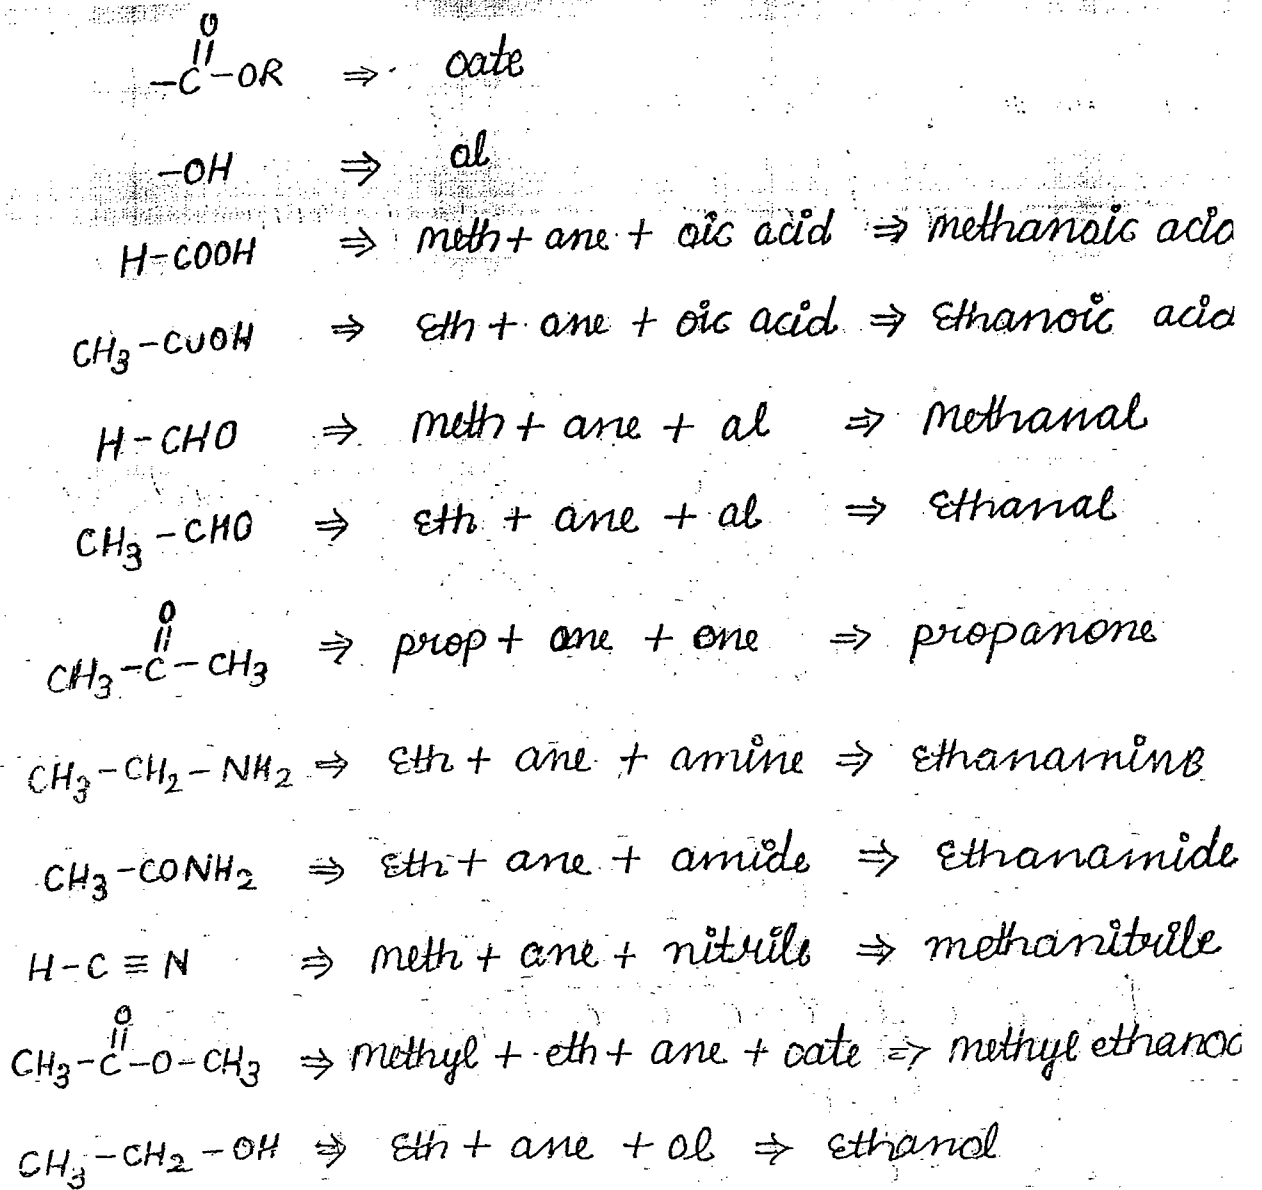 O
||
-C-OR ⇒ oate
-OH ⇒ ol
H-COOH ⇒ meth + ane + oic acid ⇒ methanoic acid
CH3-COOH ⇒ Eth + ane + oic acid ⇒ Ethanoic acid
H-CHO ⇒ meth + ane + al ⇒ methanal
CH3-CHO ⇒ Eth + ane + al ⇒ Ethanal
O
||
CH3-C-CH3 ⇒ prop + ane + one ⇒ propanone
CH3-CH2-NH2 ⇒ Eth + ane + amine ⇒ Ethanamine
CH3-CONH2 ⇒ Eth + ane + amide ⇒ Ethanamide
H-C≡N ⇒ meth + ane + nitrile ⇒ methanitrile
O
||
CH3-C-O-CH3 ⇒ methyl + eth + ane + oate ⇒ methyl ethanoa
CH3-CH2-OH ⇒ Eth + ane + ol ⇒ Ethanol